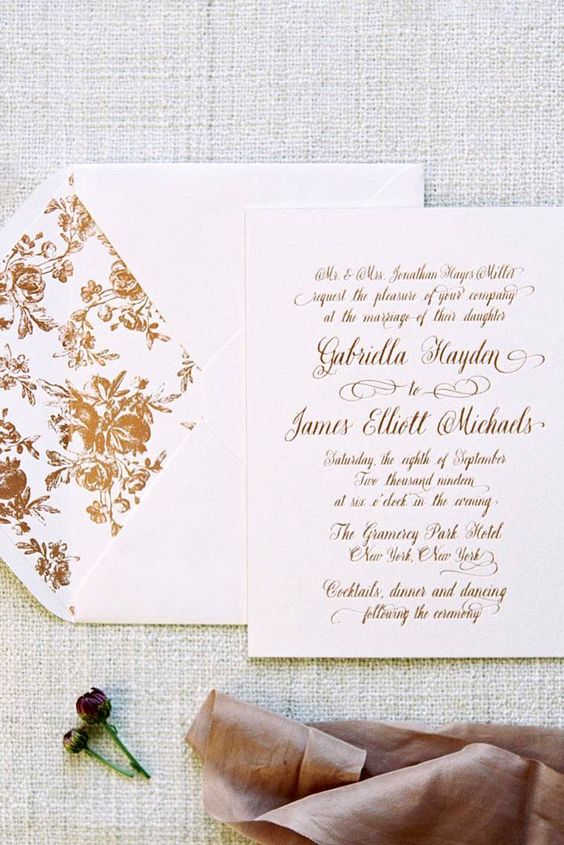 Mr. & Mrs. Jonathan Hayes Miller
request the pleasure of your company
at the marriage of their daughter
Gabriella Hayden
to
James Elliott Michaels
Saturday, the eighth of September
Two thousand nineteen
at six o'clock in the evening
The Gramercy Park Hotel
New York, New York
Cocktails, dinner and dancing
following the ceremony